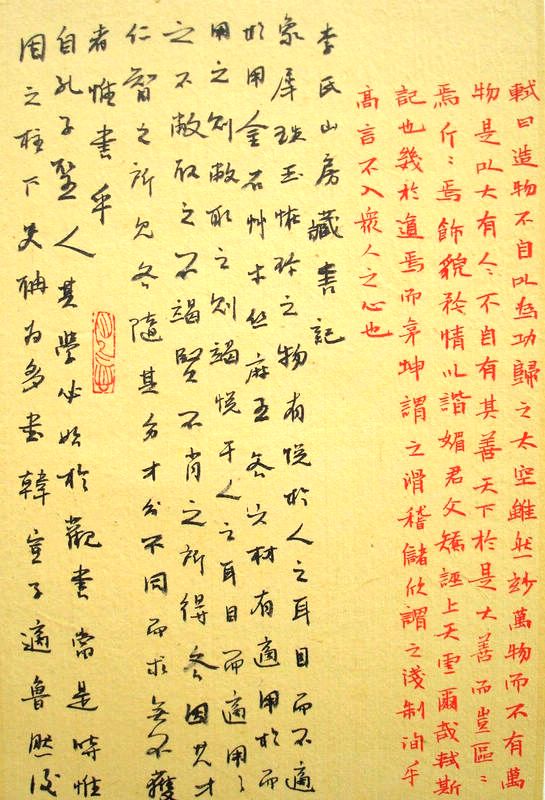 軾曰造物不自以為功歸之太空雖然妙萬物而不有萬
物是以大有人〻不自有其善天下於是大善而豈區〻
焉斤〻焉飾貌矜情以諧媚君父矯誣上天雲爾哉軾斯
記也幾於道焉而茅坤謂之滑稽儲欣謂之淺制洵乎
高言不入眾人之心也
李氏山房藏書記
象犀珠玉怪珍之物有悅於人之耳目而不適
於用金石艸木絲麻五谷六材有適用於而
用之則敝取之則竭悅于人之耳目而適用〻
之不敝取之不竭賢不肖之所得各因其才
仁智之所見各隨其分才分不同而求無不獲
者惟書乎
自孔子聖人其學必始於觀書當是時惟
周之柱下史聃為多書韓宣子適魯然後